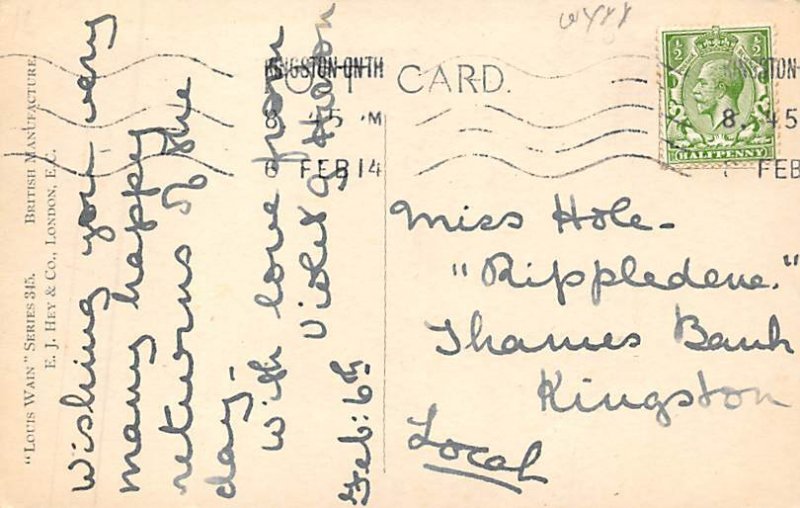 "LOUIS WAIN" SERIES 345. BRITISH MANUFACTURE.
E. J. HEY & CO., LONDON, E.C.
Wishing you very
many happy
returns of the
day.
With love from
Violet &
Feb: 6th
POST CARD.
KINGSTON-ON-TH
8. 45 PM
6 FEB 14
½ ½
HALFPENNY
KINGSTON-
8. 45
FEB
Miss Hole-
"Rippledene."
Thames Bank
Kingston
Local